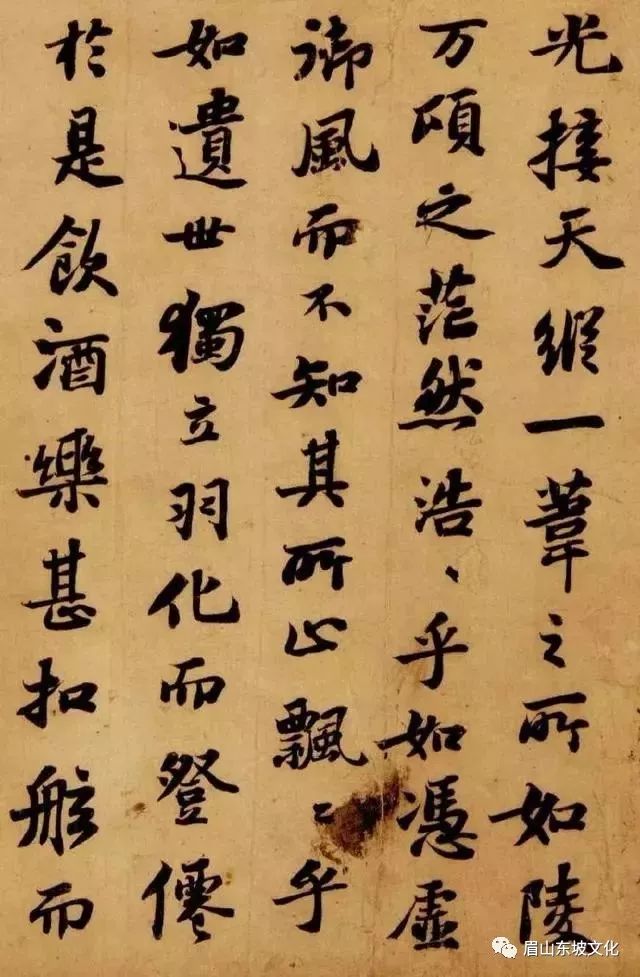 光接天縱一葦之所如陵
万頃之茫然浩〻乎如憑虛
御風而不知其所止飄〻乎
如遺世獨立羽化而登僊
於是飲酒樂甚扣舷而
眉山东坡文化